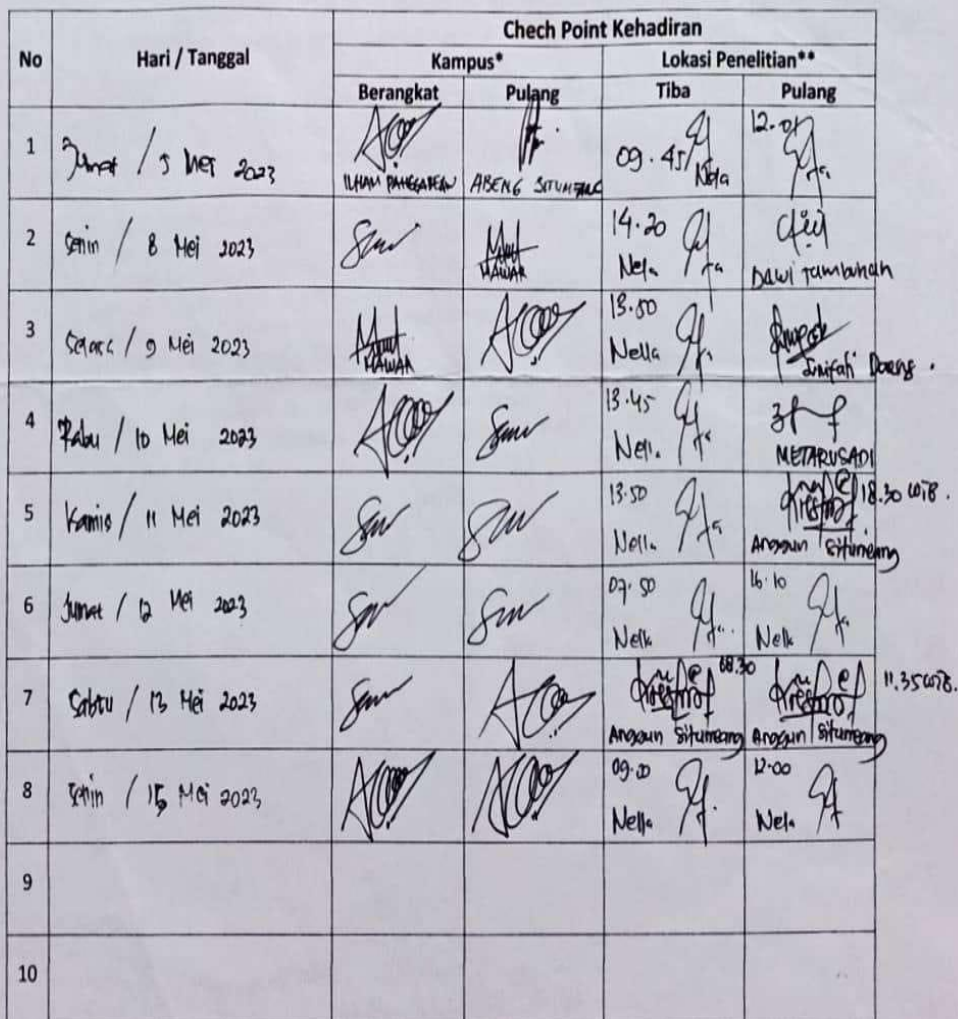 Chech Point Kehadiran
No Hari / Tanggal Kampus* Lokasi Penelitian**
Berangkat Pulang Tiba Pulang
1 Jumat / 5 Mei 2023 ILHAM PANGGABEAN ABENG 09.45 Nela 12.01
2 Senin / 8 Mei 2023 MAWAR 14.20 Nela Dawi Tambunan
3 Selasa / 9 Mei 2023 MAWAR 13.50 Nella Daeng.
4 Rabu / 10 Mei 2023 13.45 Nell. METARUSADI
5 Kamis / 11 Mei 2023 13.50 Nella 18.30 WIB. Anggun Situmeang
6 Jumat / 12 Mei 2023 07.50 Nella 16.10 Nella
7 Sabtu / 13 Mei 2023 08.30 Anggun Situmeang 11.35 WIB. Anggun Situmeang
8 Senin / 15 Mei 2023 09.00 Nella 12.00 Nela
9
10